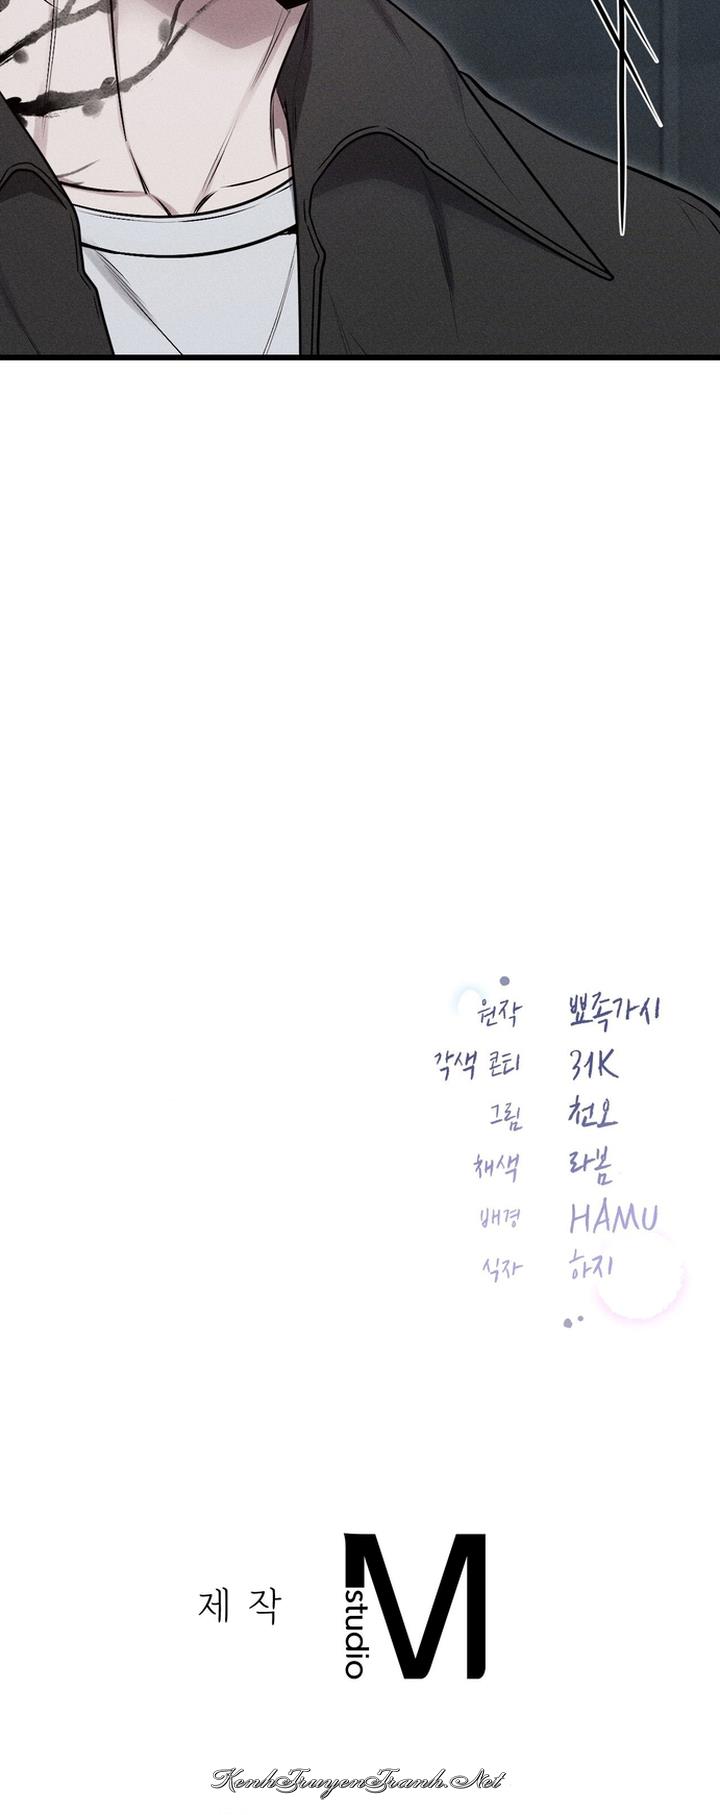 원작 뾰족가시
각색 콘티 31K
그림 천오
채색 라봄
배경 HAMU
식자 하지
제작 M studio
KenhTruyenTranh.Net